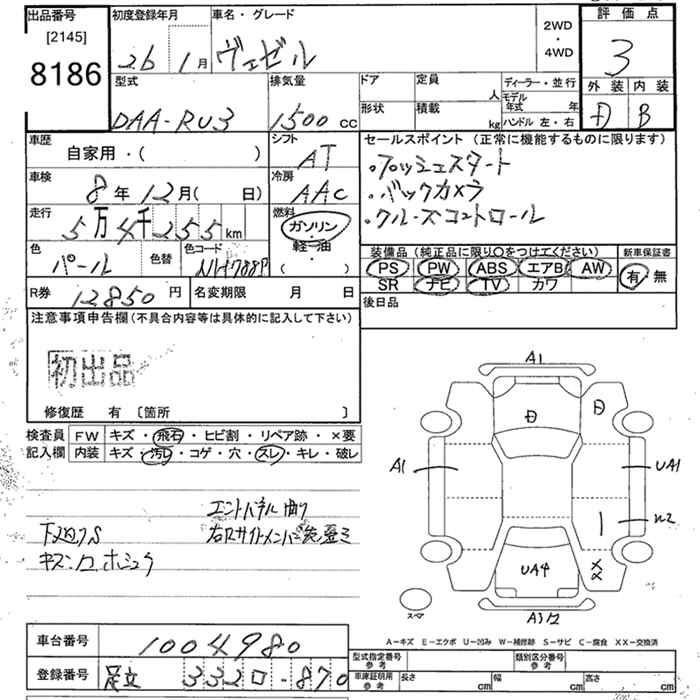 出品番号
[2145]
8186
初度登録年月
26 1月
車名・グレード
ヴェゼル
2WD
・
4WD
評価点
3
外装 内装
D B
型式
DAA-RU3
排気量
1500 CC
ドア
形状
定員 人
積載 kg
ディーラー・並行
モデル年式 年
ハンドル 左・右
車歴
自家用・( )
シフト
AT
車検
8年12月( 日)
冷房
AAC
走行
5万4千255km
燃料
ガソリン
軽油
( ・ )
色
パール
色替
色コード
NH788P
セールスポイント(正常に機能するものに限ります)
・プッシュスタート
・バックカメラ
・クルーズコントロール
装備品(純正品に限り○をつけてください)
PS PW ABS エアB AW
SR ナビ TV カワ
新車保証書
有 無
後日品
R券 12850円
名変期限 月 日
注意事項申告欄(不具合内容等は具体的に記入して下さい)
初出品
修復歴 有 〔箇所 〕
検査員記入欄
FW キズ・飛石・ヒビ割・リペア跡・×要
内装 キズ・汚レ・コゲ・穴・スレ・キレ・破レ
エンドパネル曲り
下廻りS
A1
D
D
A1
UA1
U2
UA4
XX
スペア
A-キズ E-エクボ U-凹み W-補修跡 S-サビ C-腐食 XX-交換済
車台番号 1004980
登録番号 足立 332ロ-870
型式指定番号 参考
類別区分番号 参考
車庫証明用 参考
長さ cm
幅 cm
高さ cm